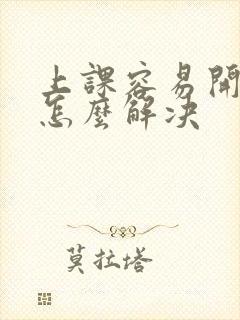 上課容易開
怎麼解决
莫拉塔